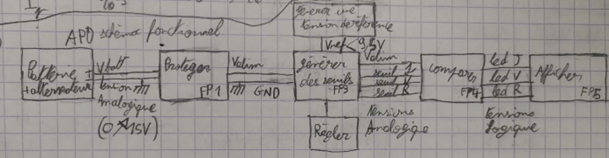 générer une
tension de référence
APD schéma fonctionnel
Vref < 9,5V
Batterie +
+ alternateur
Vbatt
tension
Analogique
(0 15V)
Protéger
FP1
Valim
GND
générer
des seuils
FP3
Valim
seuil J
seuil
seuil R
Régler
Tensions
Analogique
Comparer
FP4
led J
led V
led R
Tensions
Logique
Afficher
FP5